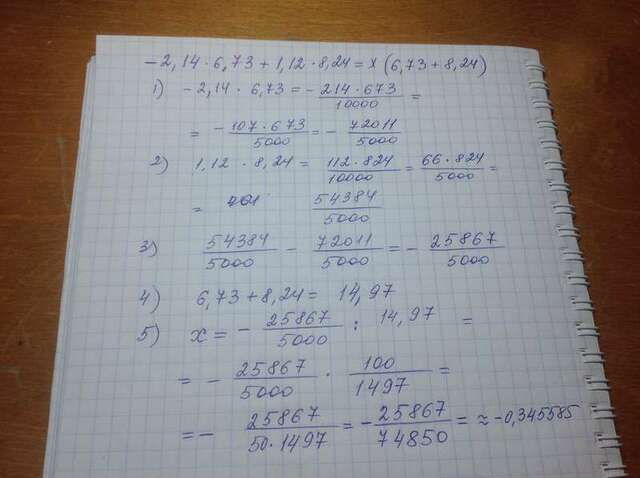 -2,14·6,73+1,12·8,24=x(6,73+8,24)
1) -2,14·6,73=-214·673/10000=
=-107·673/5000=-72011/5000
2) 1,12·8,24=112·824/10000=66·824/5000=
= 54384/5000
3) 54384/5000-72011/5000=-25867/5000
4) 6,73+8,24=14,97
5) x=-25867/5000:14,97=
=-25867/5000·100/1497=
=-25867/50·1497=-25867/74850=≈-0,345585